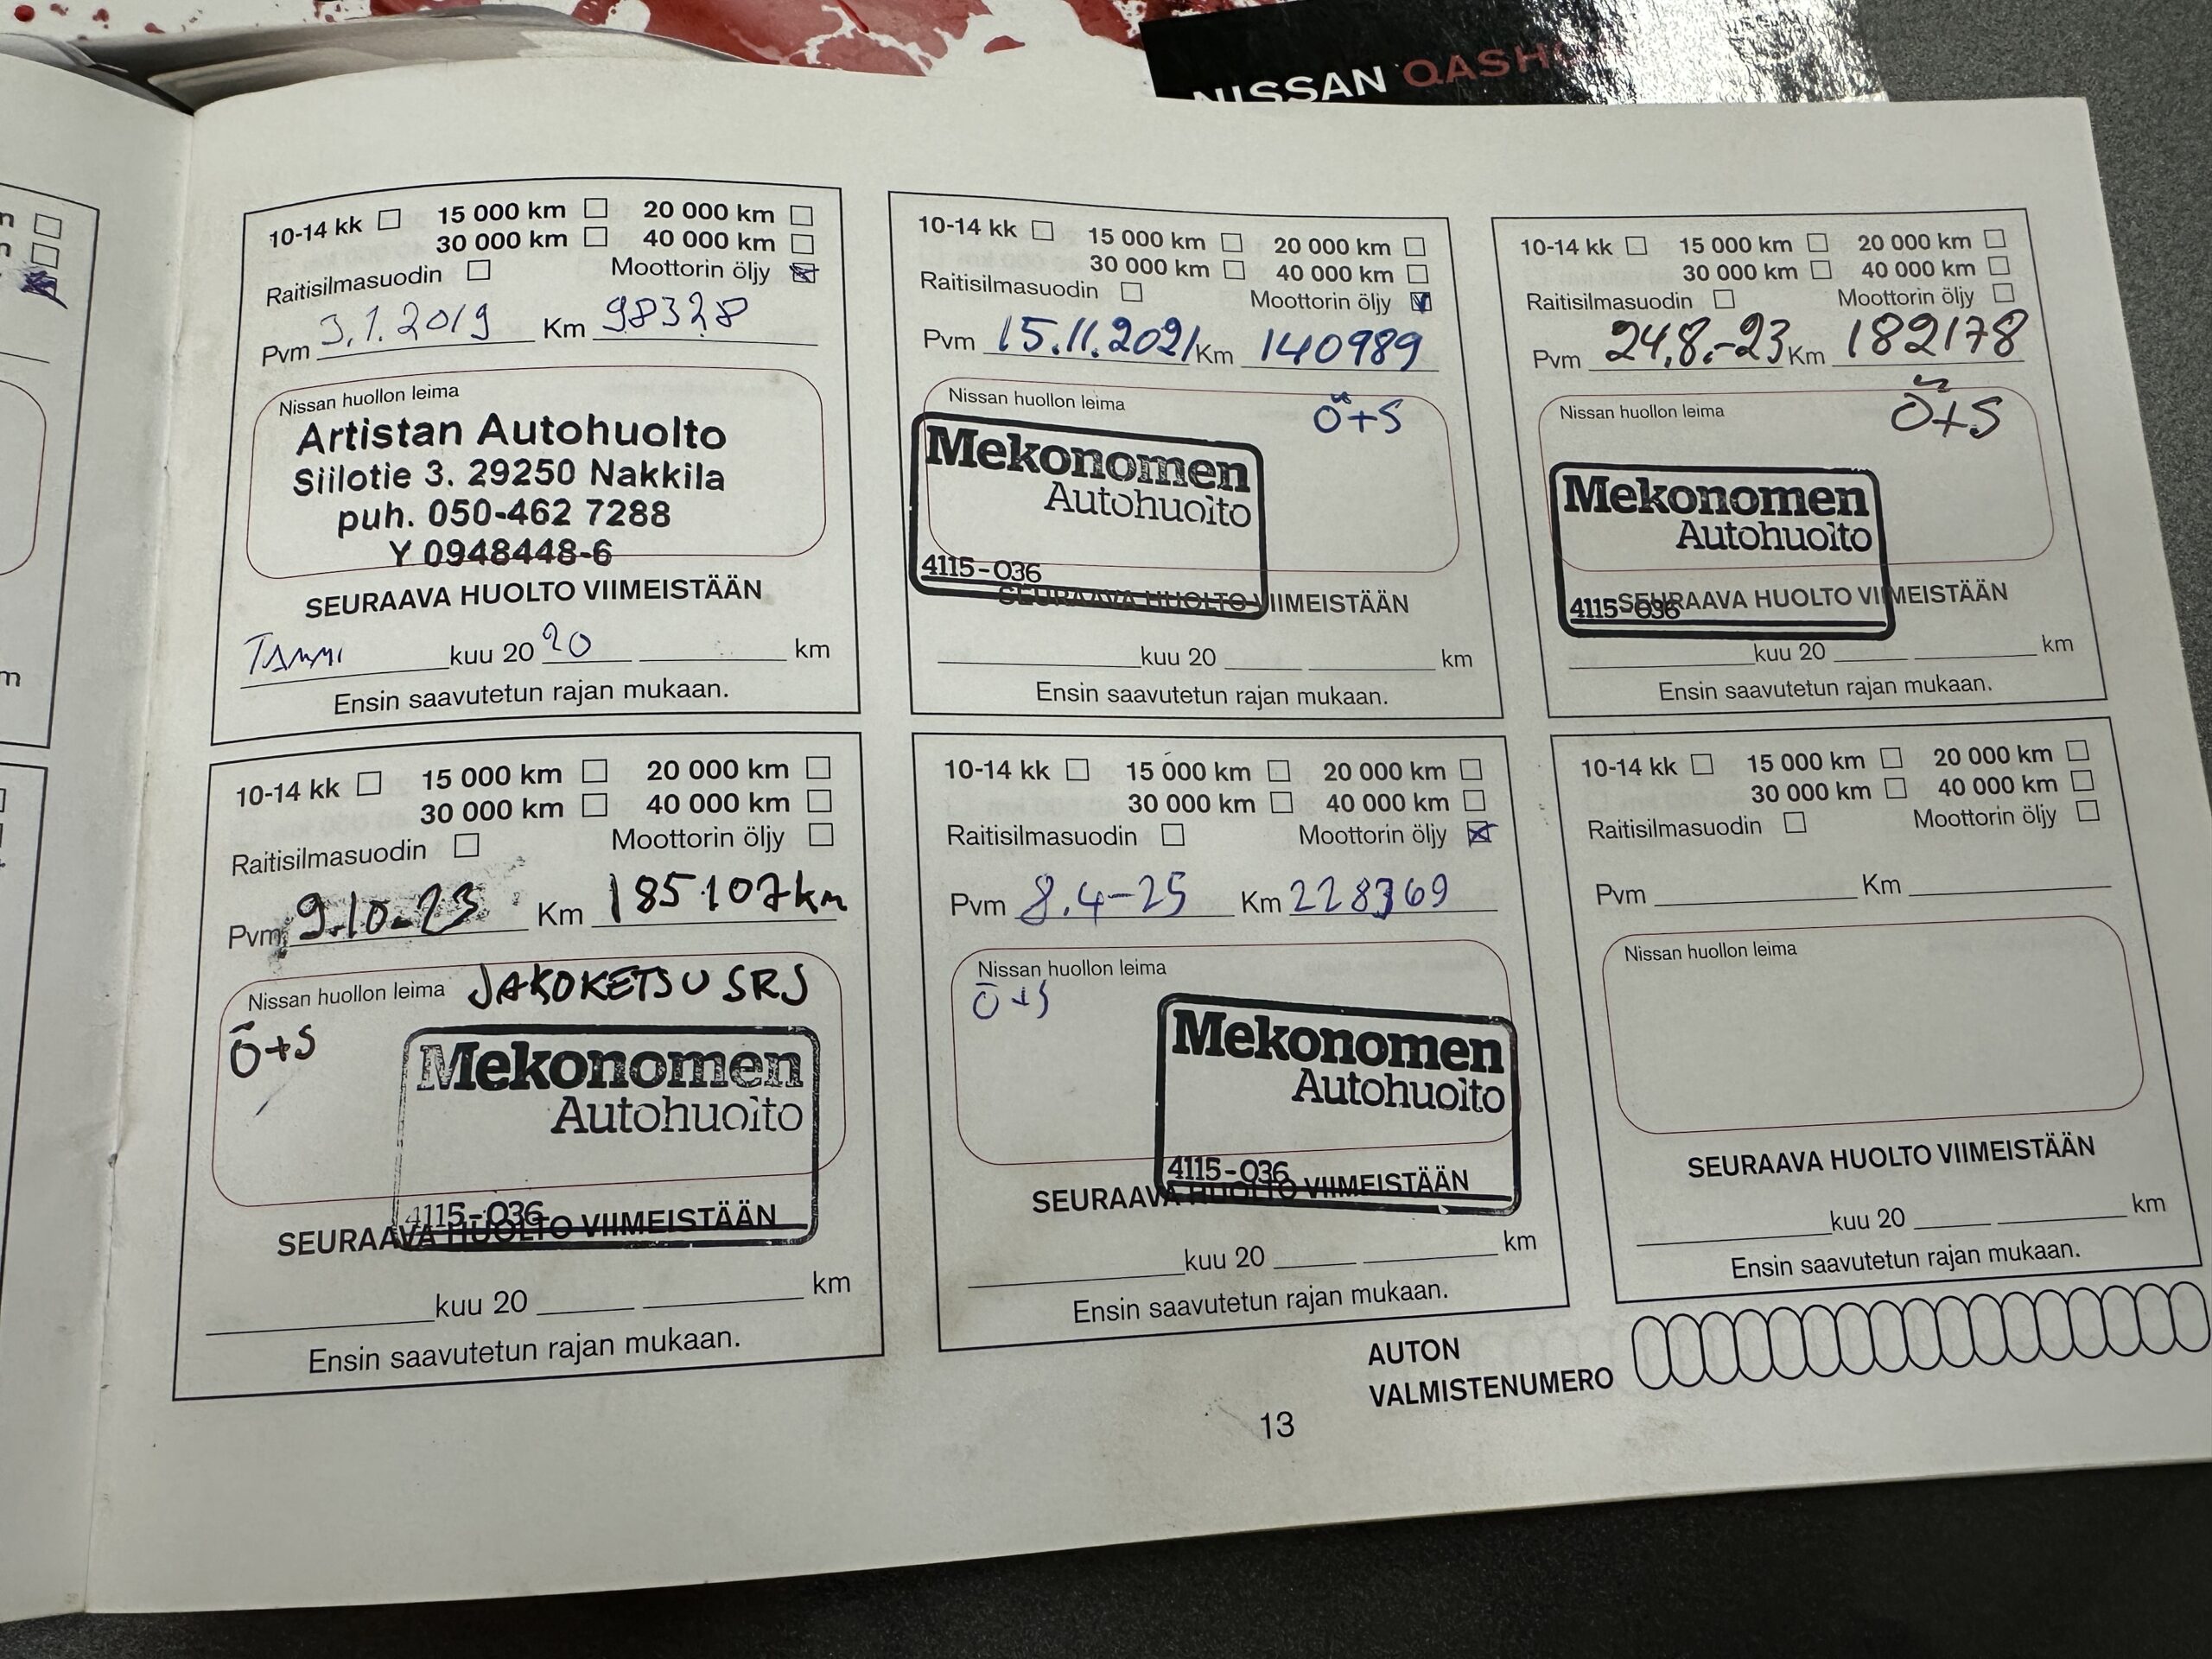 NISSAN QASHQ
10-14 kk 15 000 km 20 000 km
30 000 km 40 000 km
Raitisilmasuodin Moottorin öljy
Pvm 3.1.2019 Km 98328
Nissan huollon leima
Artistan Autohuolto
Siilotie 3. 29250 Nakkila
puh. 050-462 7288
Y 0948448-6
SEURAAVA HUOLTO VIIMEISTÄÄN
TAMMI kuu 20 20 km
Ensin saavutetun rajan mukaan.
10-14 kk 15 000 km 20 000 km
30 000 km 40 000 km
Raitisilmasuodin Moottorin öljy
Pvm 15.11.2021 Km 140989
Nissan huollon leima Ö+S
Mekonomen
Autohuolto
4115-036
SEURAAVA HUOLTO VIIMEISTÄÄN
kuu 20 km
Ensin saavutetun rajan mukaan.
10-14 kk 15 000 km 20 000 km
30 000 km 40 000 km
Raitisilmasuodin Moottorin öljy
Pvm 24.8.-23 Km 182178
Nissan huollon leima Ö+S
Mekonomen
Autohuolto
4115-036
SEURAAVA HUOLTO VIIMEISTÄÄN
kuu 20 km
Ensin saavutetun rajan mukaan.
10-14 kk 15 000 km 20 000 km
30 000 km 40 000 km
Raitisilmasuodin Moottorin öljy
Pvm 9.10-23 Km 185107km
Nissan huollon leima JAKOKETJU SRJ
Ö+S
Mekonomen
Autohuolto
4115-036
SEURAAVA HUOLTO VIIMEISTÄÄN
kuu 20 km
Ensin saavutetun rajan mukaan.
10-14 kk 15 000 km 20 000 km
30 000 km 40 000 km
Raitisilmasuodin Moottorin öljy
Pvm 8.4-25 Km 228369
Nissan huollon leima
Ö+S
Mekonomen
Autohuolto
4115-036
SEURAAVA HUOLTO VIIMEISTÄÄN
kuu 20 km
Ensin saavutetun rajan mukaan.
10-14 kk 15 000 km 20 000 km
30 000 km 40 000 km
Raitisilmasuodin Moottorin öljy
Pvm Km
Nissan huollon leima
SEURAAVA HUOLTO VIIMEISTÄÄN
kuu 20 km
Ensin saavutetun rajan mukaan.
AUTON
VALMISTENUMERO
13